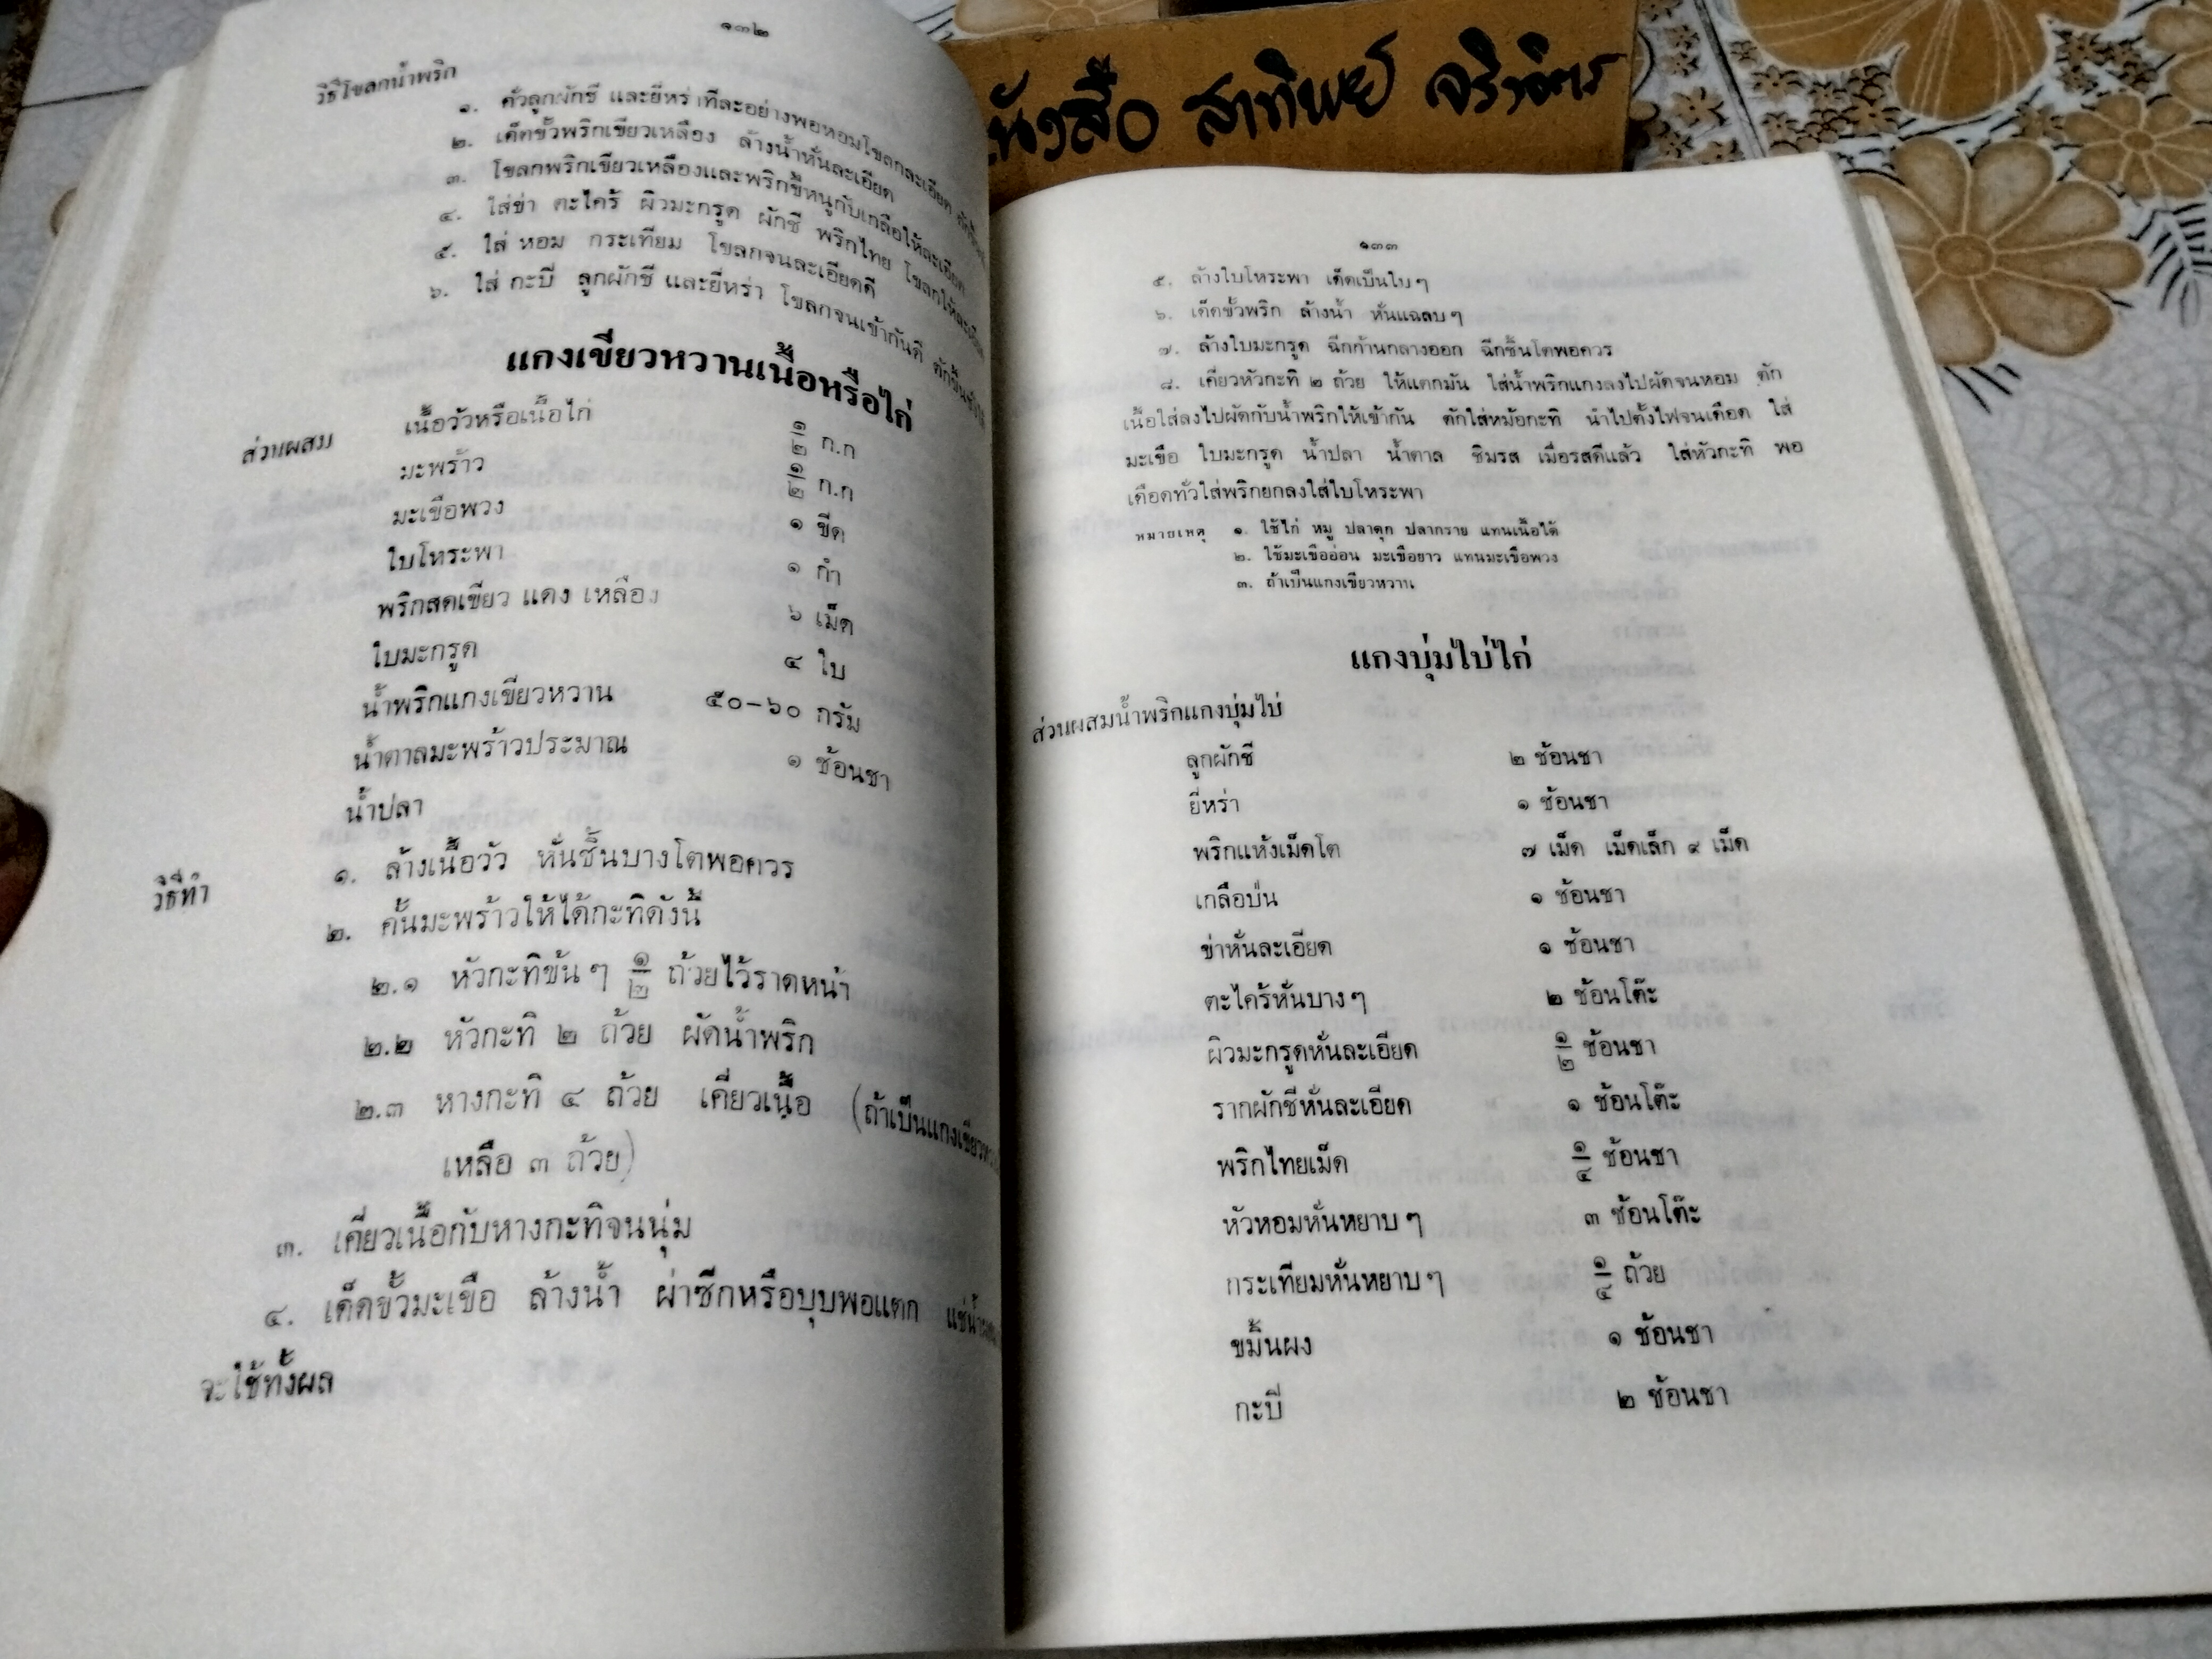 หนังสือ สาทิพย์ จริงจิตร
๑๓๒
วิธีโขลกน้ำพริก
๑. คั่วลูกผักชี และยี่หร่าทีละอย่างพอหอมโขลกละเอียด ตักขึ้น
๒. เด็ดขั้วพริกเขียวเหลือง ล้างน้ำหั่นละเอียด
๓. โขลกพริกเขียวเหลืองและพริกขี้หนูกับเกลือให้ละเอียด
๔. ใส่ข่า ตะไคร้ ผิวมะกรูด ผักชี พริกไทย โขลกให้ละเอียด
๕. ใส่ หอม กระเทียม โขลกจนละเอียดดี
๖. ใส่ กะปิ ลูกผักชี และยี่หร่า โขลกจนเข้ากันดี ตักขึ้น
แกงเขียวหวานเนื้อหรือไก่
ส่วนผสม
เนื้อวัวหรือเนื้อไก่ ๑/๒ ก.ก
มะพร้าว ๑/๒ ก.ก
มะเขือพวง ๑ ขีด
ใบโหระพา ๑ กำ
พริกสดเขียว แดง เหลือง ๖ เม็ด
ใบมะกรูด ๔ ใบ
น้ำพริกแกงเขียวหวาน ๕๐–๖๐ กรัม
น้ำตาลมะพร้าวประมาณ ๑ ช้อนชา
น้ำปลา
วิธีทำ
๑. ล้างเนื้อวัว หั่นชิ้นบางโตพอควร
๒. คั้นมะพร้าวให้ได้กะทิดังนี้
๒.๑ หัวกะทิข้น ๆ ๑/๒ ถ้วยไว้ราดหน้า
๒.๒ หัวกะทิ ๒ ถ้วย ผัดน้ำพริก
๒.๓ หางกะทิ ๔ ถ้วย เคี่ยวเนื้อ (ถ้าเป็นแกงเขียวหวาน
เหลือ ๓ ถ้วย)
๓. เคี่ยวเนื้อกับหางกะทิจนนุ่ม
๔. เด็ดขั้วมะเขือ ล้างน้ำ ผ่าซีกหรือบุบพอแตก แช่น้ำ
จะใช้ทั้งผล
๑๓๓
๕. ล้างใบโหระพา เด็ดเป็นใบ ๆ
๖. เด็ดขั้วพริก ล้างน้ำ หั่นแฉลบ ๆ
๗. ล้างใบมะกรูด ฉีกก้านกลางออก ฉีกชิ้นโตพอควร
๘. เคี่ยวหัวกะทิ ๒ ถ้วย ให้แตกมัน ใส่น้ำพริกแกงลงไปผัดจนหอม ตัก
เนื้อใส่ลงไปผัดกับน้ำพริกให้เข้ากัน ตักใส่หม้อกะทิ นำไปตั้งไฟจนเดือด ใส่
มะเขือ ใบมะกรูด น้ำปลา น้ำตาล ชิมรส เมื่อรสดีแล้ว ใส่หัวกะทิ พอ
เดือดทั่วใส่พริกยกลงใส่ใบโหระพา
หมายเหตุ ๑. ใช้ไก่ หมู ปลาดุก ปลากราย แทนเนื้อได้
๒. ใช้มะเขืออ่อน มะเขือยาว แทนมะเขือพวง
๓. ถ้าเป็นแกงเขียวหวาน
แกงบุ่มไบ่ไก่
ส่วนผสมน้ำพริกแกงบุ่มไบ่
ลูกผักชี ๒ ช้อนชา
ยี่หร่า ๑ ช้อนชา
พริกแห้งเม็ดโต ๗ เม็ด เม็ดเล็ก ๙ เม็ด
เกลือป่น ๑ ช้อนชา
ข่าหั่นละเอียด ๑ ช้อนชา
ตะไคร้หั่นบาง ๆ ๒ ช้อนโต๊ะ
ผิวมะกรูดหั่นละเอียด ๑/๒ ช้อนชา
รากผักชีหั่นละเอียด ๑ ช้อนโต๊ะ
พริกไทยเม็ด ๑/๔ ช้อนชา
หัวหอมหั่นหยาบ ๆ ๓ ช้อนโต๊ะ
กระเทียมหั่นหยาบ ๆ ๑/๔ ถ้วย
ขมิ้นผง ๑ ช้อนชา
กะปิ ๒ ช้อนชา